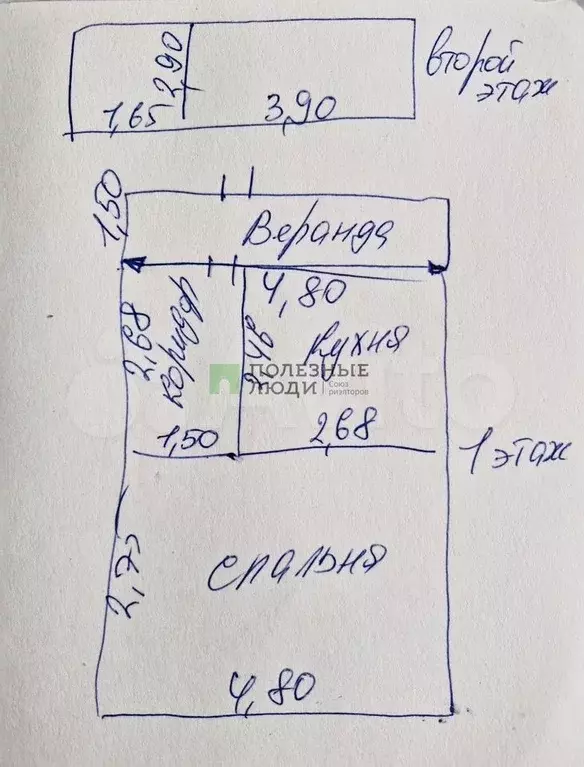 второй
этаж
2,90
1,65
3,90
1,50
Веранда
4,80
2,68
коридор
2,46
кухня
ПОЛЕЗНЫЕ
ЛЮДИ
Союз
риэлторов
1,50
2,68
1 этаж
2,75
спальня
4,80